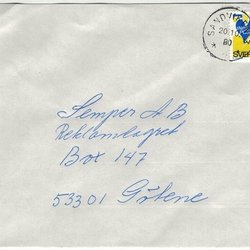 SANDVI
20.10
80
SVER
Semper AB
Reklamlagret
Box 147
53301 Götene